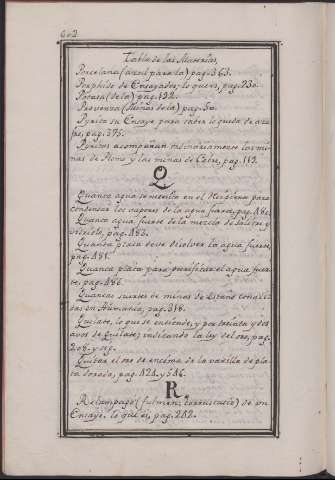 602
Tabla de las Materias.
Porcelana (azul para la) pag. 363.
Porphido de Ensayador, lo que es, pag. 230.
Potasa (de la) pag. 192.
Provenza (Minas de la) pag. 50.
Pyrita su Ensaye para saber lo que da de azu-
fre, pag. 375.
Pyritas acompañan ordinariamente las mi-
nas de Plomo y las minas de Cobre, pag. 119.
Q
Quanta agua se necesita en el para
condensar los vapores de la agua fuerte, pag. 482.
Quanta agua fuerte de la mezcla de salitre y
vidriolo, pag. 483.
Quanta plata deve disolver la agua fuerte,
pag. 481.
Quanta plata para precipitar el agua fuer-
te, pag. 486.
Quantas suertes de minas de Estaño conoci-
das en Alemania, pag. 318.
Quilate, lo que se entiende, y por treinta y dos
avos de Quilate; indicando la ley del oro, pag.
208. y sig.
Quitar el oro de encima de la vaxilla de pla-
ta dorada, pag. 424. y 546.
R.
Relampago (fulmen, corruscatio) de un
Ensaye. lo que es, pag. 282.